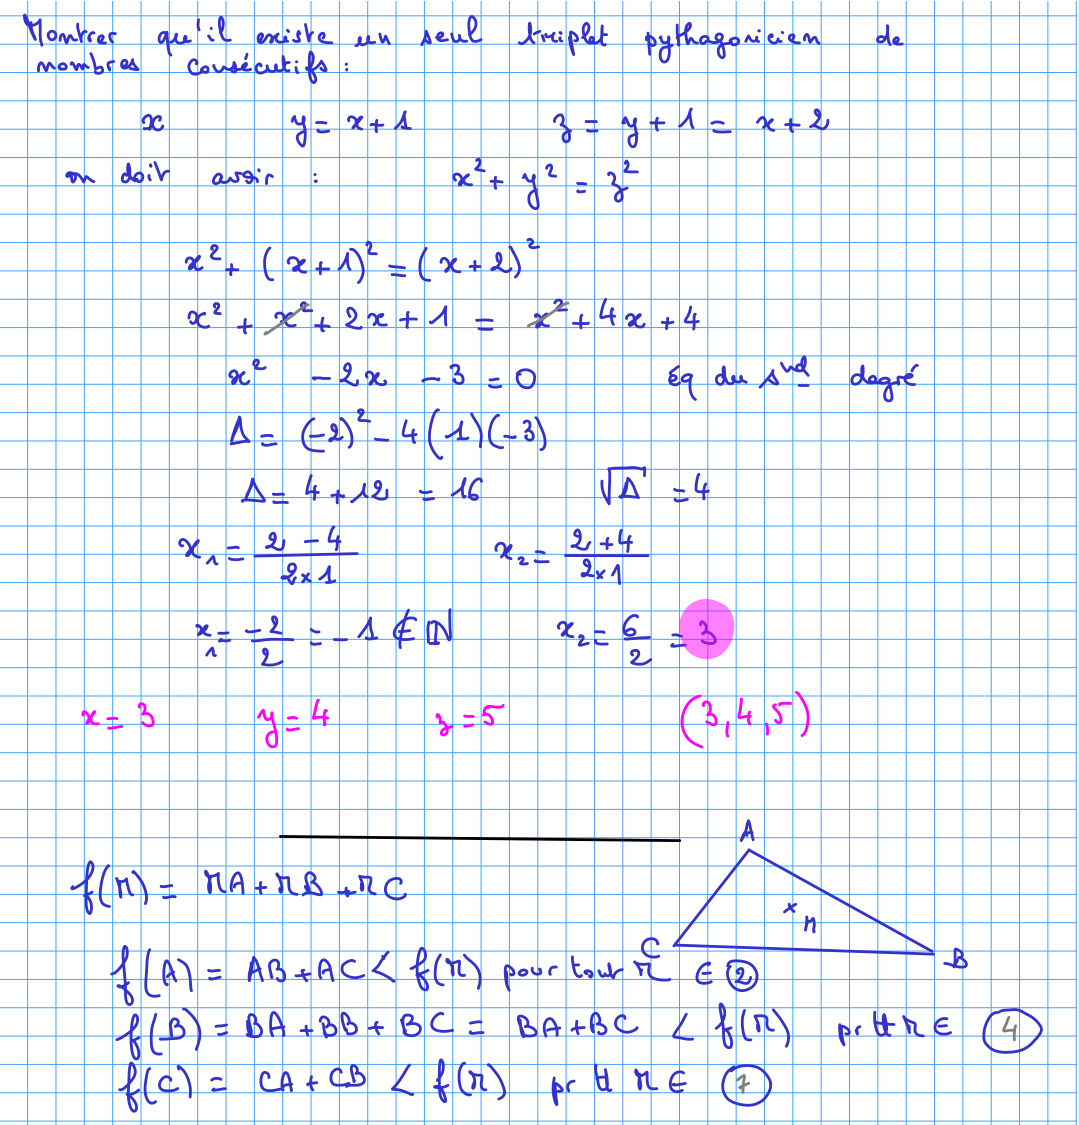 Montrer qu'il existe un seul triplet pythagoricien de
nombres consécutifs :
x y = x + 1 z = y + 1 = x + 2
on doit avoir : x² + y² = z²
x² + (x + 1)² = (x + 2)²
x² + x² + 2x + 1 = x² + 4x + 4
x² - 2x - 3 = 0 Éq du snd degré
Δ = (-2)² - 4(1)(-3)
Δ = 4 + 12 = 16 √Δ = 4
x₁ = (2 - 4)/(2×1) x₂ = (2 + 4)/(2×1)
x₁ = -2/2 = -1 ∉ ℕ x₂ = 6/2 = 3
x = 3 y = 4 z = 5 (3, 4, 5)
A
f(M) = MA + MB + MC
M
C
B
f(A) = AB + AC < f(M) pour tout M ∈ ②
f(B) = BA + BB + BC = BA + BC < f(M) pr tt M ∈ ④
f(C) = CA + CB < f(M) pr tt M ∈ ⑦